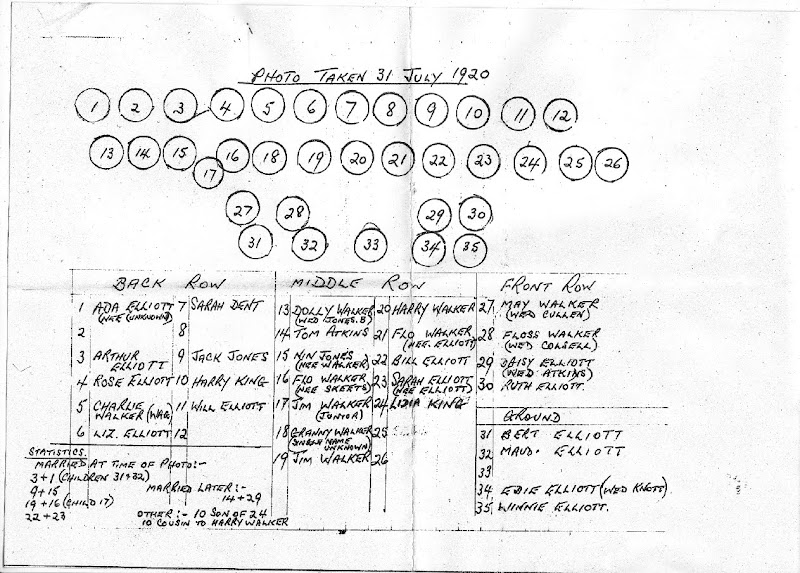 PHOTO TAKEN 31 JULY 1920
1 2 3 4 5 6 7 8 9 10 11 12
13 14 15 16 18 19 20 21 22 23 24 25 26
17
27 28 29 30
31 32 33 34 35
BACK ROW
1 ADA ELLIOTT
(NEE UNKNOWN)
2
3 ARTHUR
ELLIOTT
4 ROSE ELLIOTT
5 CHARLIE
WALKER (WAG)
6 LIZ. ELLIOTT
7 SARAH DENT
8
9 JACK JONES
10 HARRY KING
11 WILL ELLIOTT
12
MIDDLE ROW
13 DOLLY WALKER
(WED JONES.B)
14 TOM ATKINS
15 NIN JONES
(NEE WALKER)
16 FLO WALKER
(NEE SKEETS)
17 JIM WALKER
(JUNIOR)
18 GRANNY WALKER
(SINGLE NAME
UNKNOWN)
19 JIM WALKER
20 HARRY WALKER
21 FLO WALKER
(NEE. ELLIOTT)
22 BILL ELLIOTT
23 SARAH ELLIOTT
(NEE ELLIOTT)
24 LIZIA KING
25
26
FRONT ROW
27 MAY WALKER
(WED CULLEN)
28 FLOSS WALKER
(WED COLSELL)
29 DAISY ELLIOTT
(WED ATKINS)
30 RUTH ELLIOTT.
GROUND
31 BERT ELLIOTT
32 MAUD. ELLIOTT
33
34 EDIE ELLIOTT (WED KNOTS)
35 WINNIE ELLIOTT.
STATISTICS.
MARRIED AT TIME OF PHOTO:-
3+1 (CHILDREN 31+32)
9+15
19+16 (CHILD 17)
22+23
MARRIED LATER:-
14+29
OTHER:- 10 SON OF 24
10 COUSIN TO HARRY WALKER